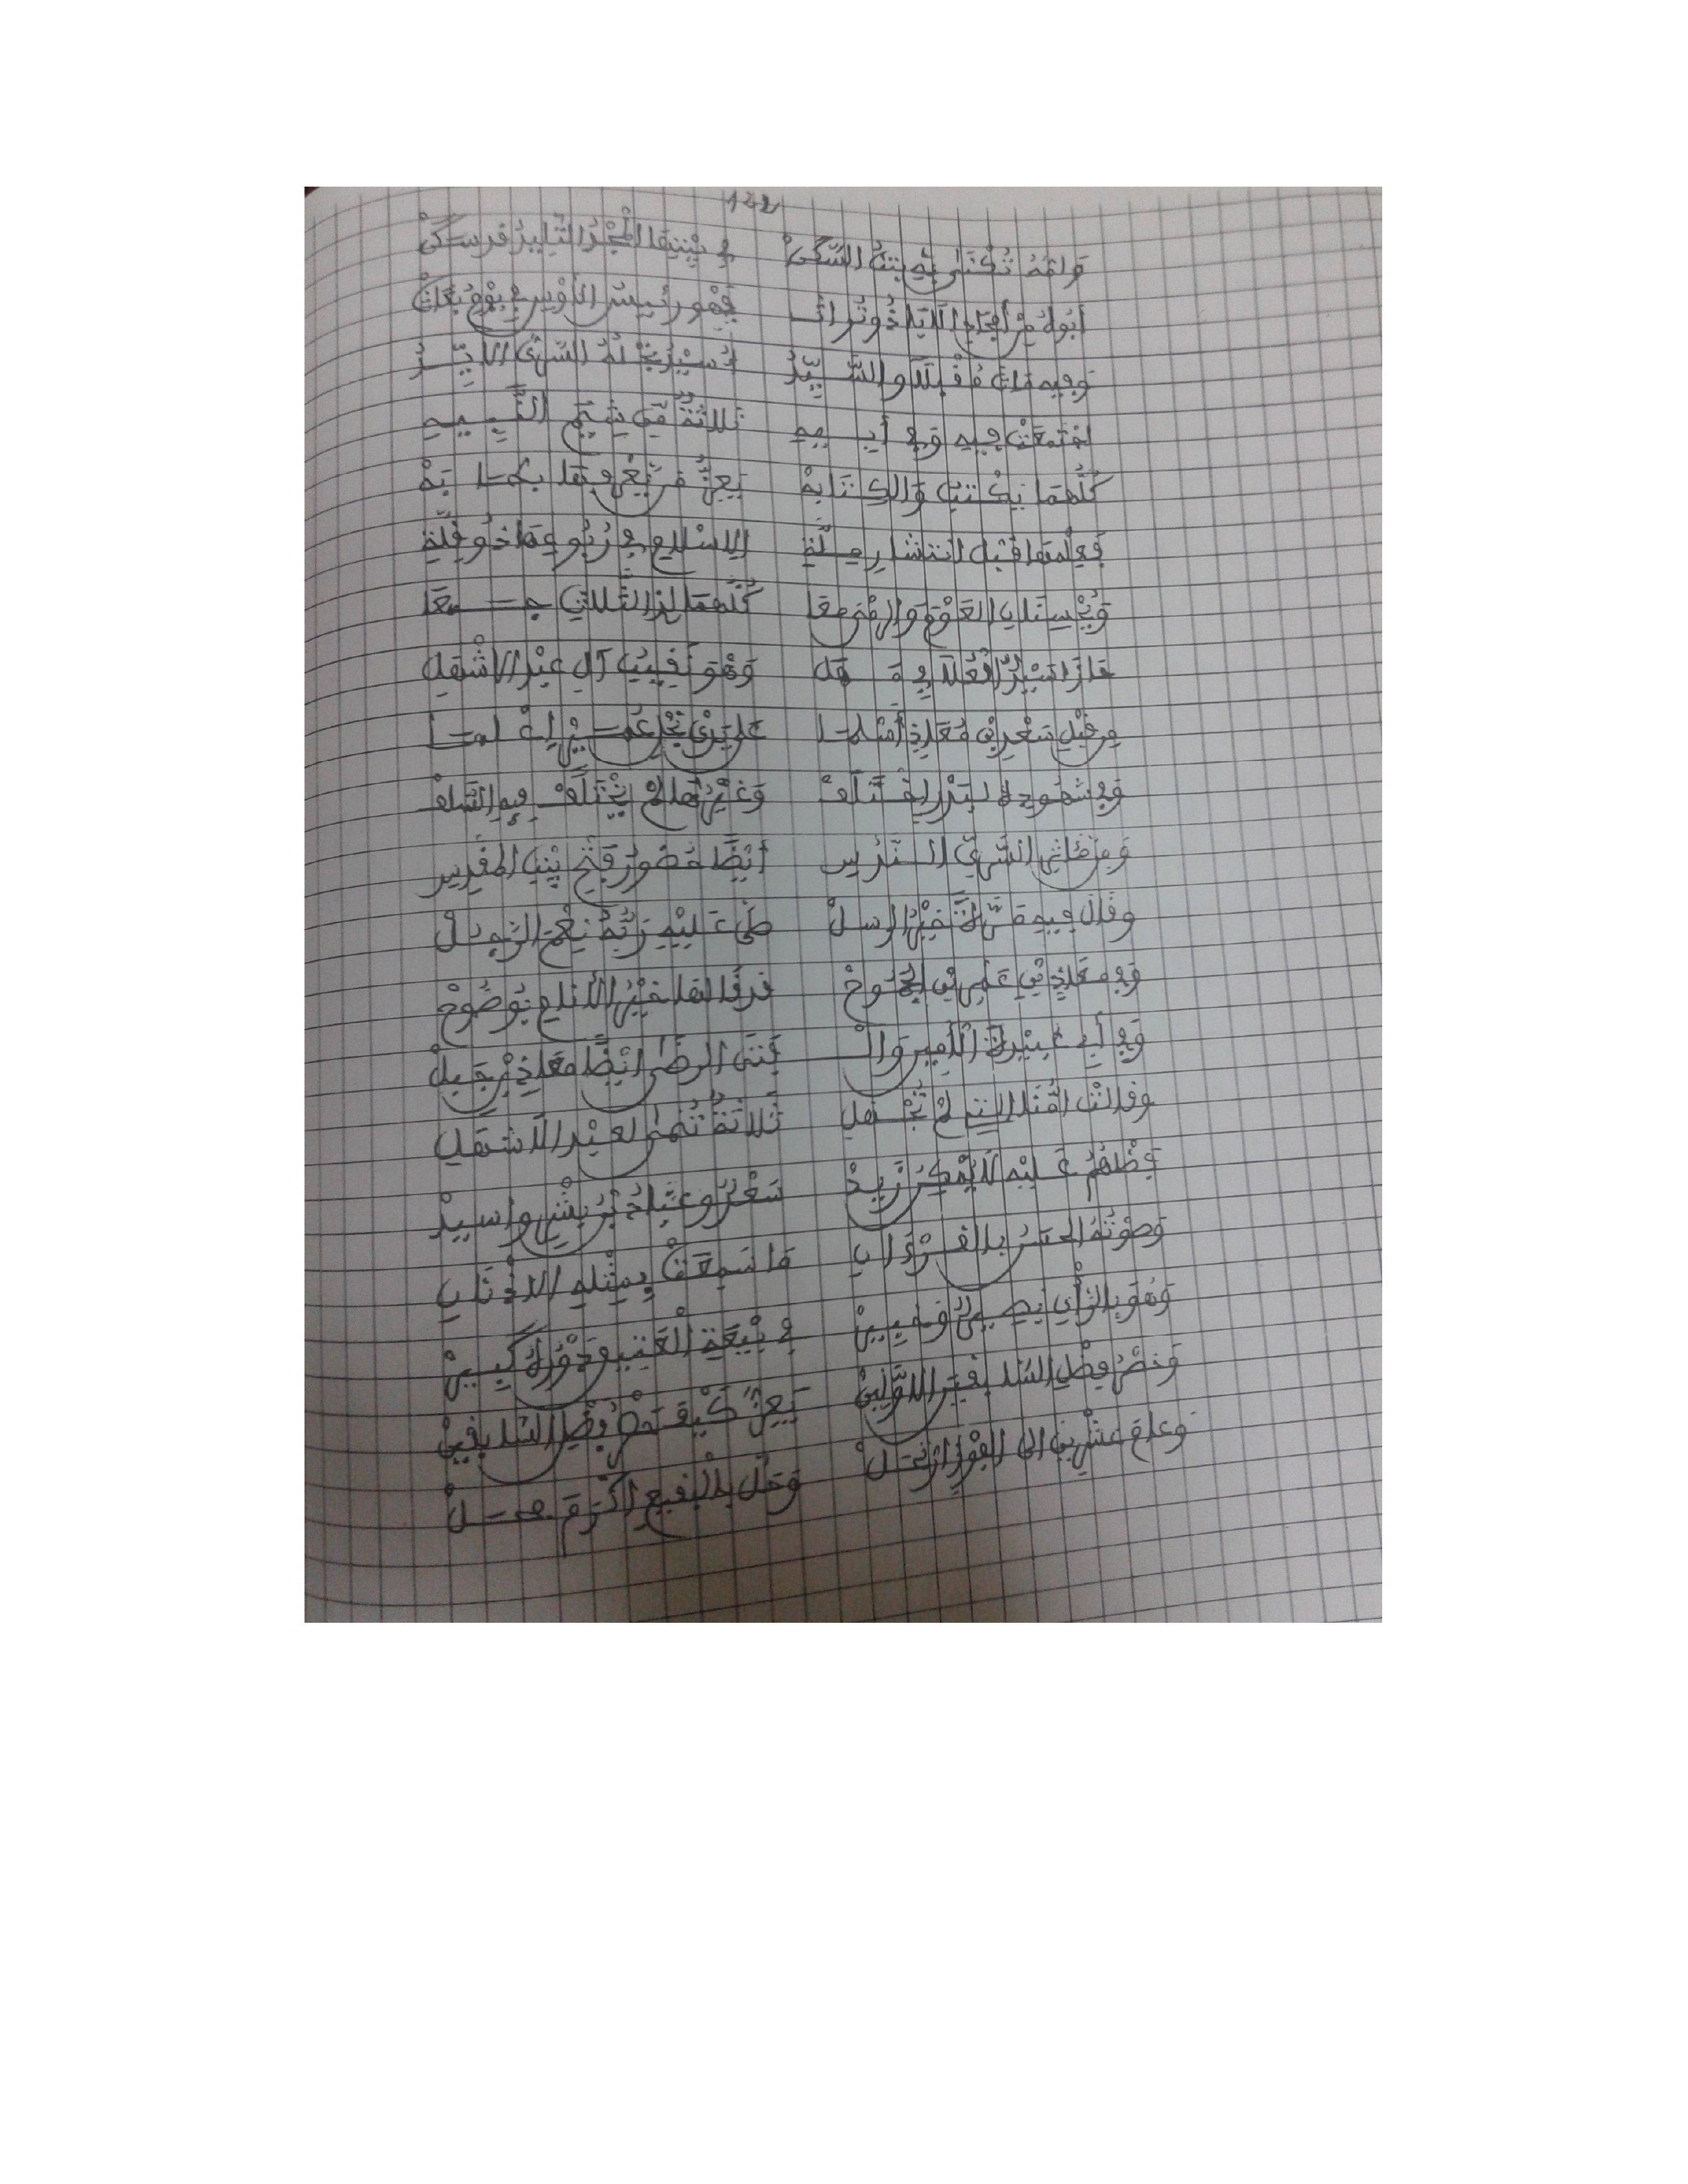 122
وَأُمُّهُ تُكْنَى بِهِ بِنْتُ السَّكَنْ في بَيْتِهَا الْمَجْدُ التَّلِيدُ قد سكنْ
أبوه من أمجاد فَهْو رئيسُ الأوْسِ في يوْمِ بُعَاثْ
وفيه مات مُقْبِلًا والسَّيِّدُ أُسَيْدٌ نجْلُهُ السَّرِيُّ الأيِّدُ
اجْتمَعَتْ فيه وفي أبيهِ ثَلاثَةٌ مِن شِيَمِ النَّبِيهِ
كُلُّهُمَا يَكْتُبُ وَالكِتَابَهْ يَعِزُّ مَن يَعْرِفُهَا بِطَابَهْ
فَعِلْمُهَا قَبْلَ انتشارِ مِلَّةِ الإسْلامِ في رُبُوعِهَا ذُو قِلَّةِ
وَيُحْسِنَانِ الْعَوْمَ وَالرِّمَى مَعَا كُلُّهُمَا لذي الثَّلاثِ جمعَا
حَازَ أُسَيْدٌ الْعُلَا في مَهَلِ وَهْوَ نَقِيبُ آلِ عبْدِ الاشْهَلِ
من قبْلِ سَعْدِ بْنِ مُعَاذٍ أسْلَمَا علَى يَدَيْ نَجْلِ عُمَيْرٍ اعْلَمَا
وفي شهودِهِ لبَدْرٍ اخْتُلِفْ وَغَيْرُهَا لَمْ يَخْتَلِفْ فِيهِ السَّلَفْ
وَمِنْ مَآثِرِ السَّرِيِّ النَّدُسِ أيْضًا حُضُورُ فَتْحِ بَيْتِ المَقْدِسِ
وقَالَ فيه خَيْرُ الرسلْ صَلَّى عَلَيْهِ رَبُّهُ نِعْمَ الرَّجُلْ
وفي مُعَاذِ بْنِ عَمْرِو بْنِ الجَمُوحْ قد قالها خَيْرُ الأَنَامِ بِوُضُوحْ
وفي أبي عُبَيْدَةَ الأَمِيرِ وَالْـ فَتَى الرضى ايْضًا مُعَاذِ بْنِ جَبَلْ
وقالتْ امُّنَا التي لمْ تُجْهَلِ ثَلاثَةٌ تُنْمَى لعبْدِ الاَشْهَلِ
فَضْلُهُمُ عَلَيْهِ لَا يُمْكِنُ زَيْدْ سَعْدٌ وعَبَّادُ بْنُ بِشْرٍ وأُسَيْدْ
وَصَوْتُهُ الحسَنُ بالقُرْءَانِ مَا سَمِعَتْ بِمِثْلِهِ الاذَانِ
وَهُوَ بِالرَّأْيِ بَصِيرٌ وَ في بَيْعَةِ الْعَتِيقِ دَوْرُهُ كَبِيرْ
وَخَصَّ فضْلَ السَّابِقِينَ الاوَّلِينْ يَعِزُّ كَيْفَ خَصَّ فَضْلَ السَّابِقِينْ
وعامَ عشْرِينَ إلى الفَوْزِ ارْتَحَلْ وَحَلَّ بِالْبَقِيعِ أَكْرَمَ مَحَلْ